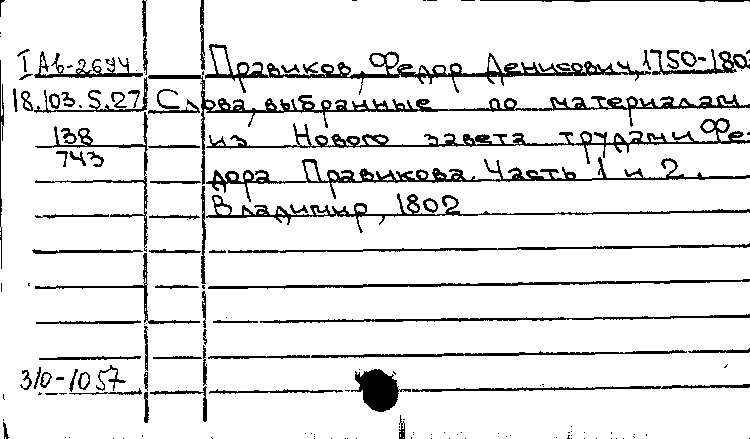 I Аб-2694 Правиков, Федор Денисович, 1750-180
18.103.5.27 Слова, выбранные по материалам
138 из Нового завета трудами Фе-
743 дора Правикова. Часть 1 и 2.
Владимир, 1802.
310-1057